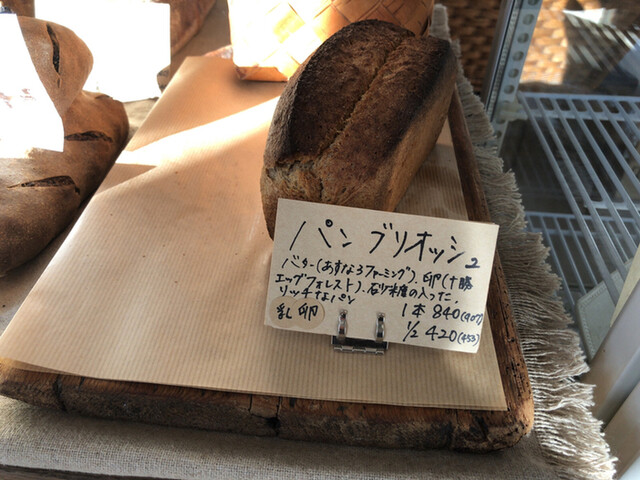 パン ブリオッシュ
バター(あすなろファーミング)、卵(十勝
エッグフォレスト)、砂糖の入った、
リッチなパン
乳 卵
1本 840(907)
1/2 420(453)